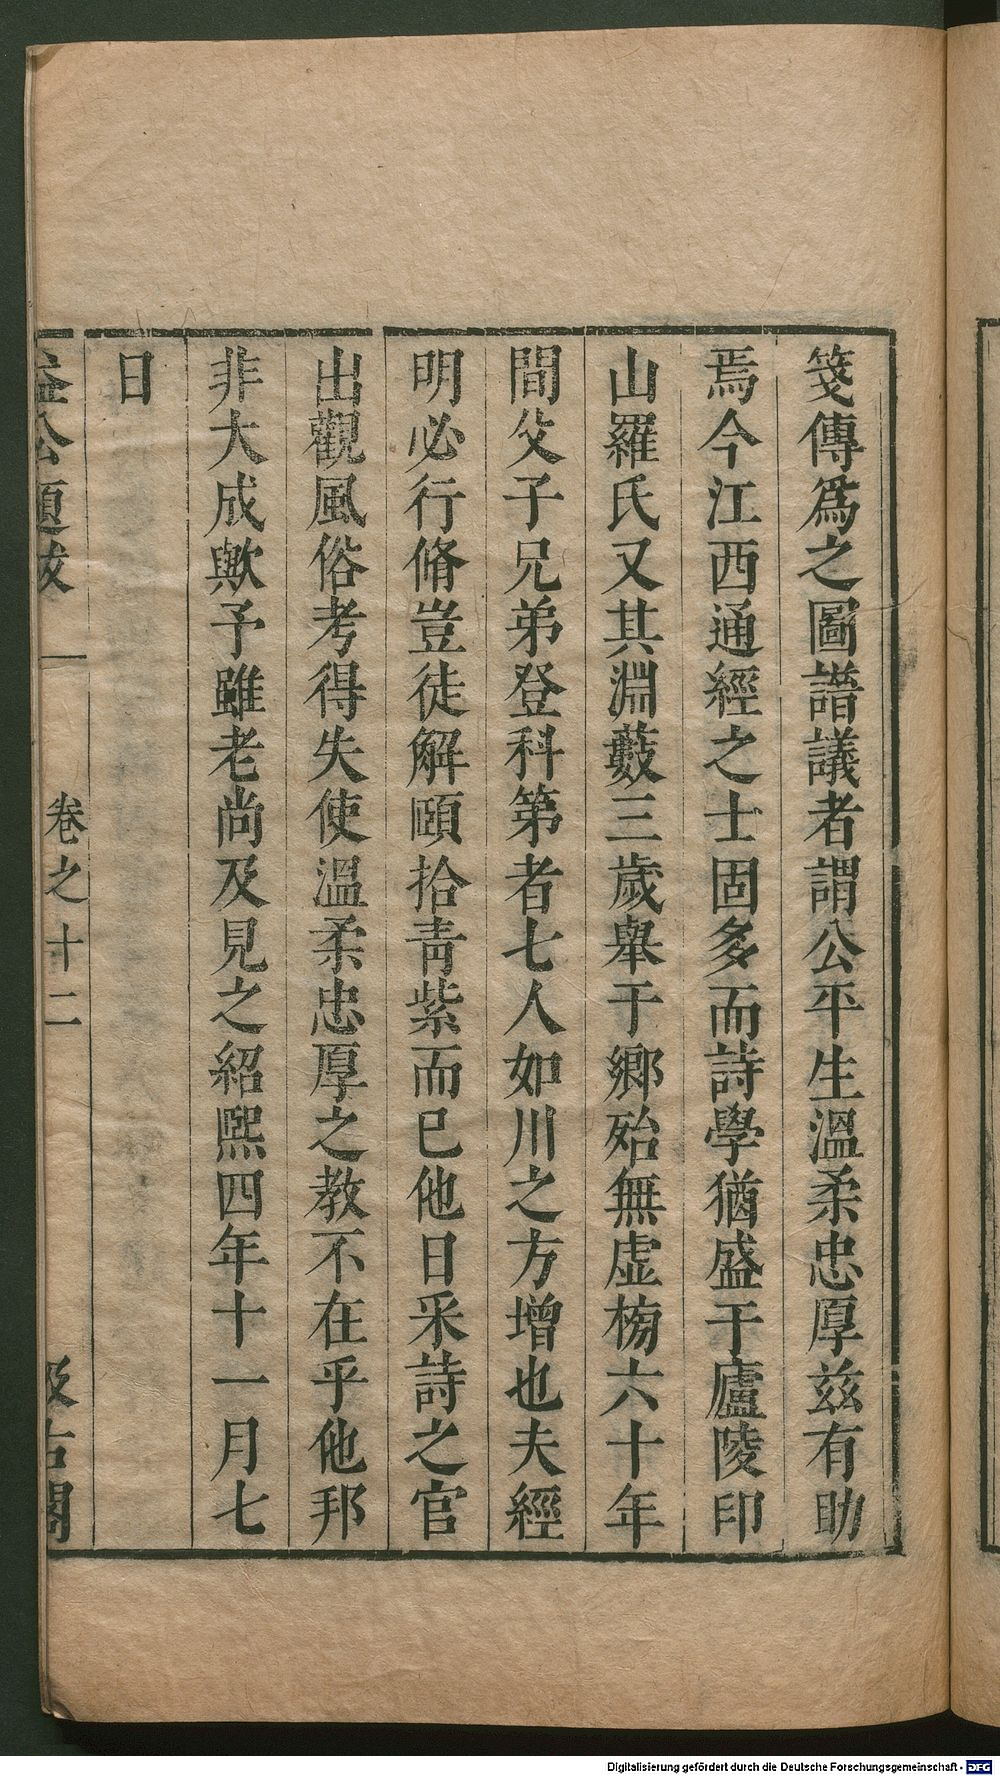 箋傳爲之圖譜議者謂公平生溫柔忠厚兹有助
焉今江西通經之士固多而詩學猶盛于廬陵印
山羅氏又其淵藪三歲舉于鄉殆無虚榜六十年
間父子兄弟登科第者七人如川之方增也夫經
明必行脩豈徒解頤拾青紫而已他日采詩之官
出觀風俗考得失使溫柔忠厚之教不在乎他邦
非大成歟予雖老尚及見之紹熙四年十一月七
日
益公題跋 卷之十二 汲古閣
Digitalisierung gefördert durch die Deutsche Forschungsgemeinschaft - DFG